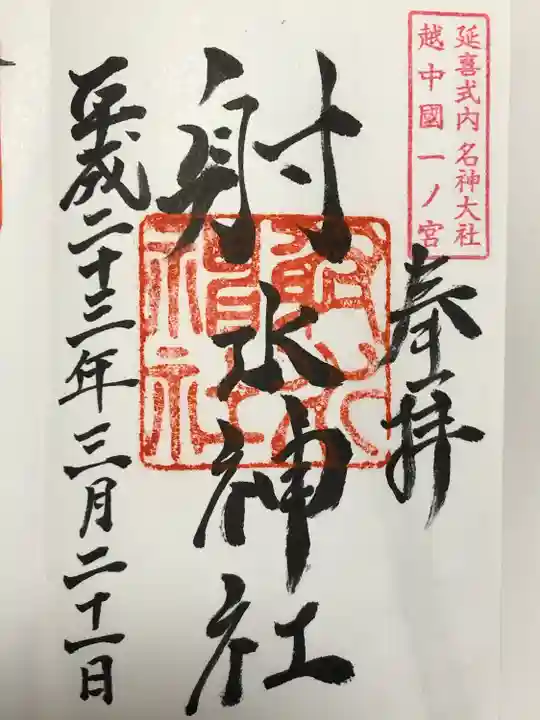 延喜式内名神大社
越中國一ノ宮
奉拝
射水神社
射水神社
平成二十三年三月二十一日